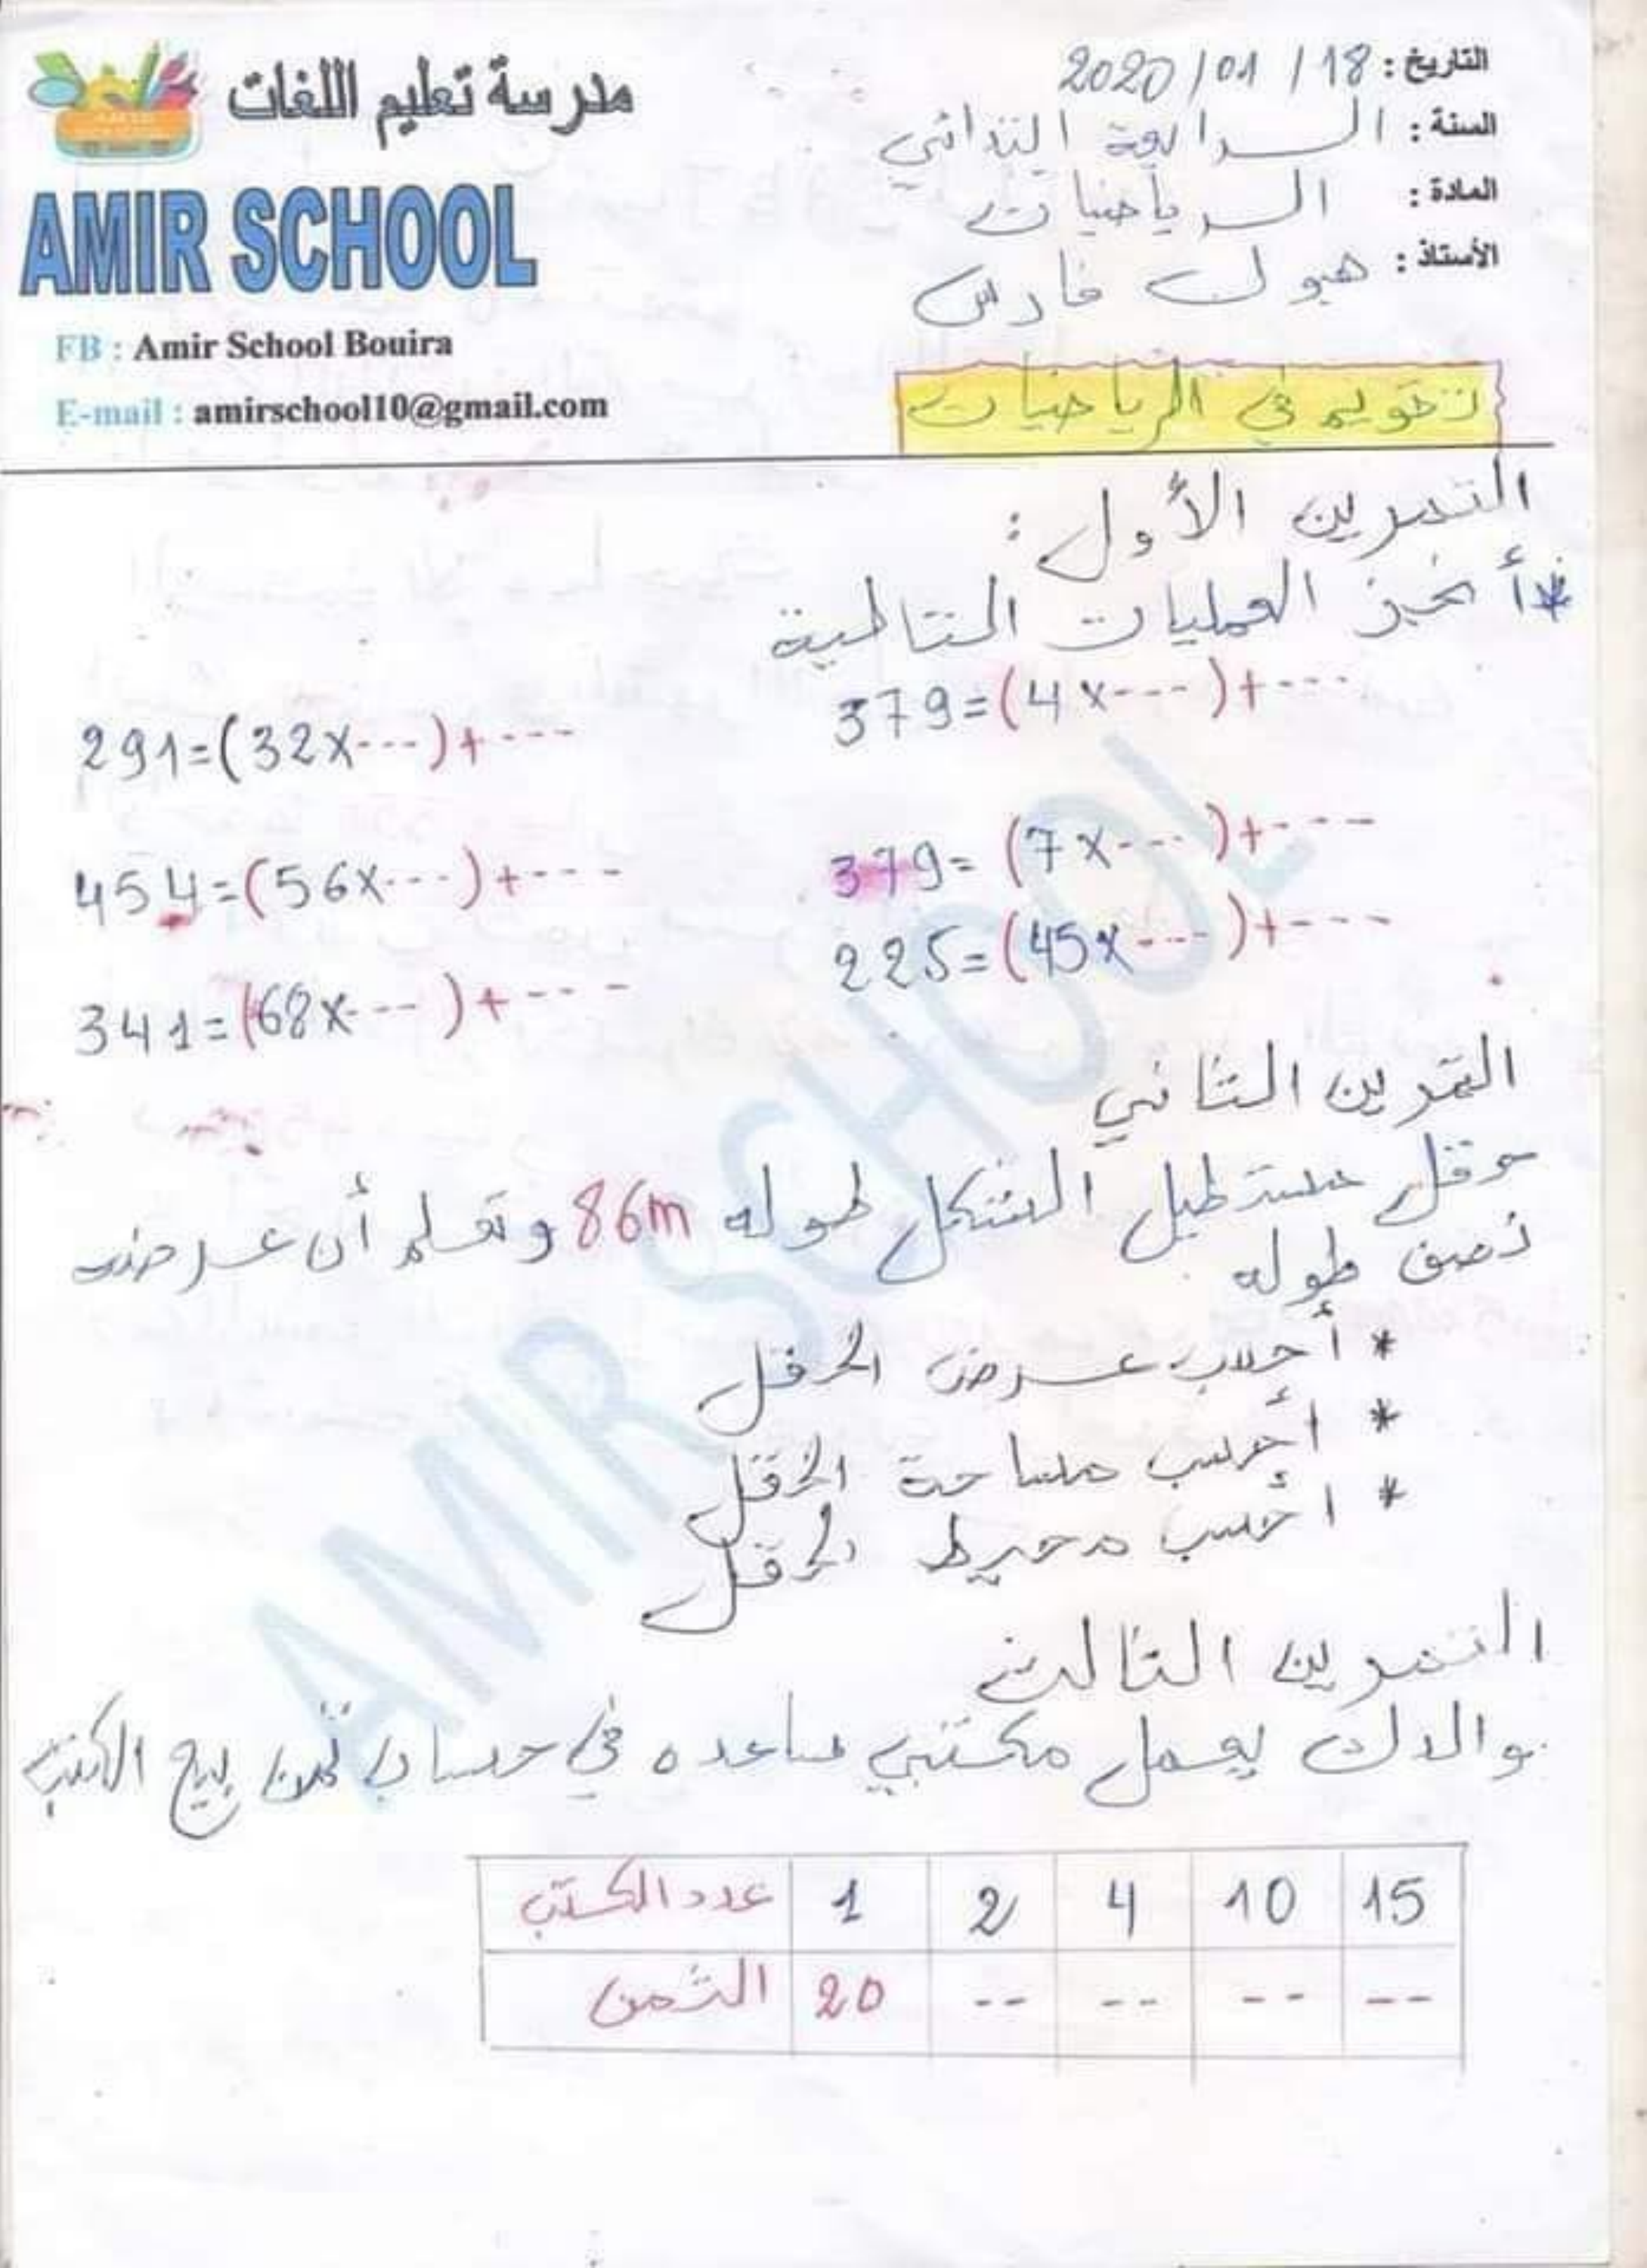 مدرسة تعليم اللغات
AMIR SCHOOL
FB : Amir School Bouira
E-mail : amirschool10@gmail.com
التاريخ : 18 / 01 / 2020
السنة : الرابعة ابتدائي
المادة : الرياضيات
الأستاذ : هبول فارس
تقويم في الرياضيات
التمرين الأول :
* أنجز العمليات التالية
379=(4x---)+---
291=(32x---)+---
379=(7x---)+---
454=(56x---)+---
225=(45x---)+---
341=(68x---)+---
التمرين الثاني
حقل مستطيل الشكل طوله 86m وتعلم أن عرضه
نصف طوله
* أحسب عرض الحقل
* أحسب مساحة الحقل
* أحسب محيط الحقل
التمرين الثالث
والدك يعمل مكتبي ساعده في حساب ثمن بيع الكتب
عدد الكتب 1 2 4 10 15
الثمن 20 -- -- -- --
AMIR SCHOOL